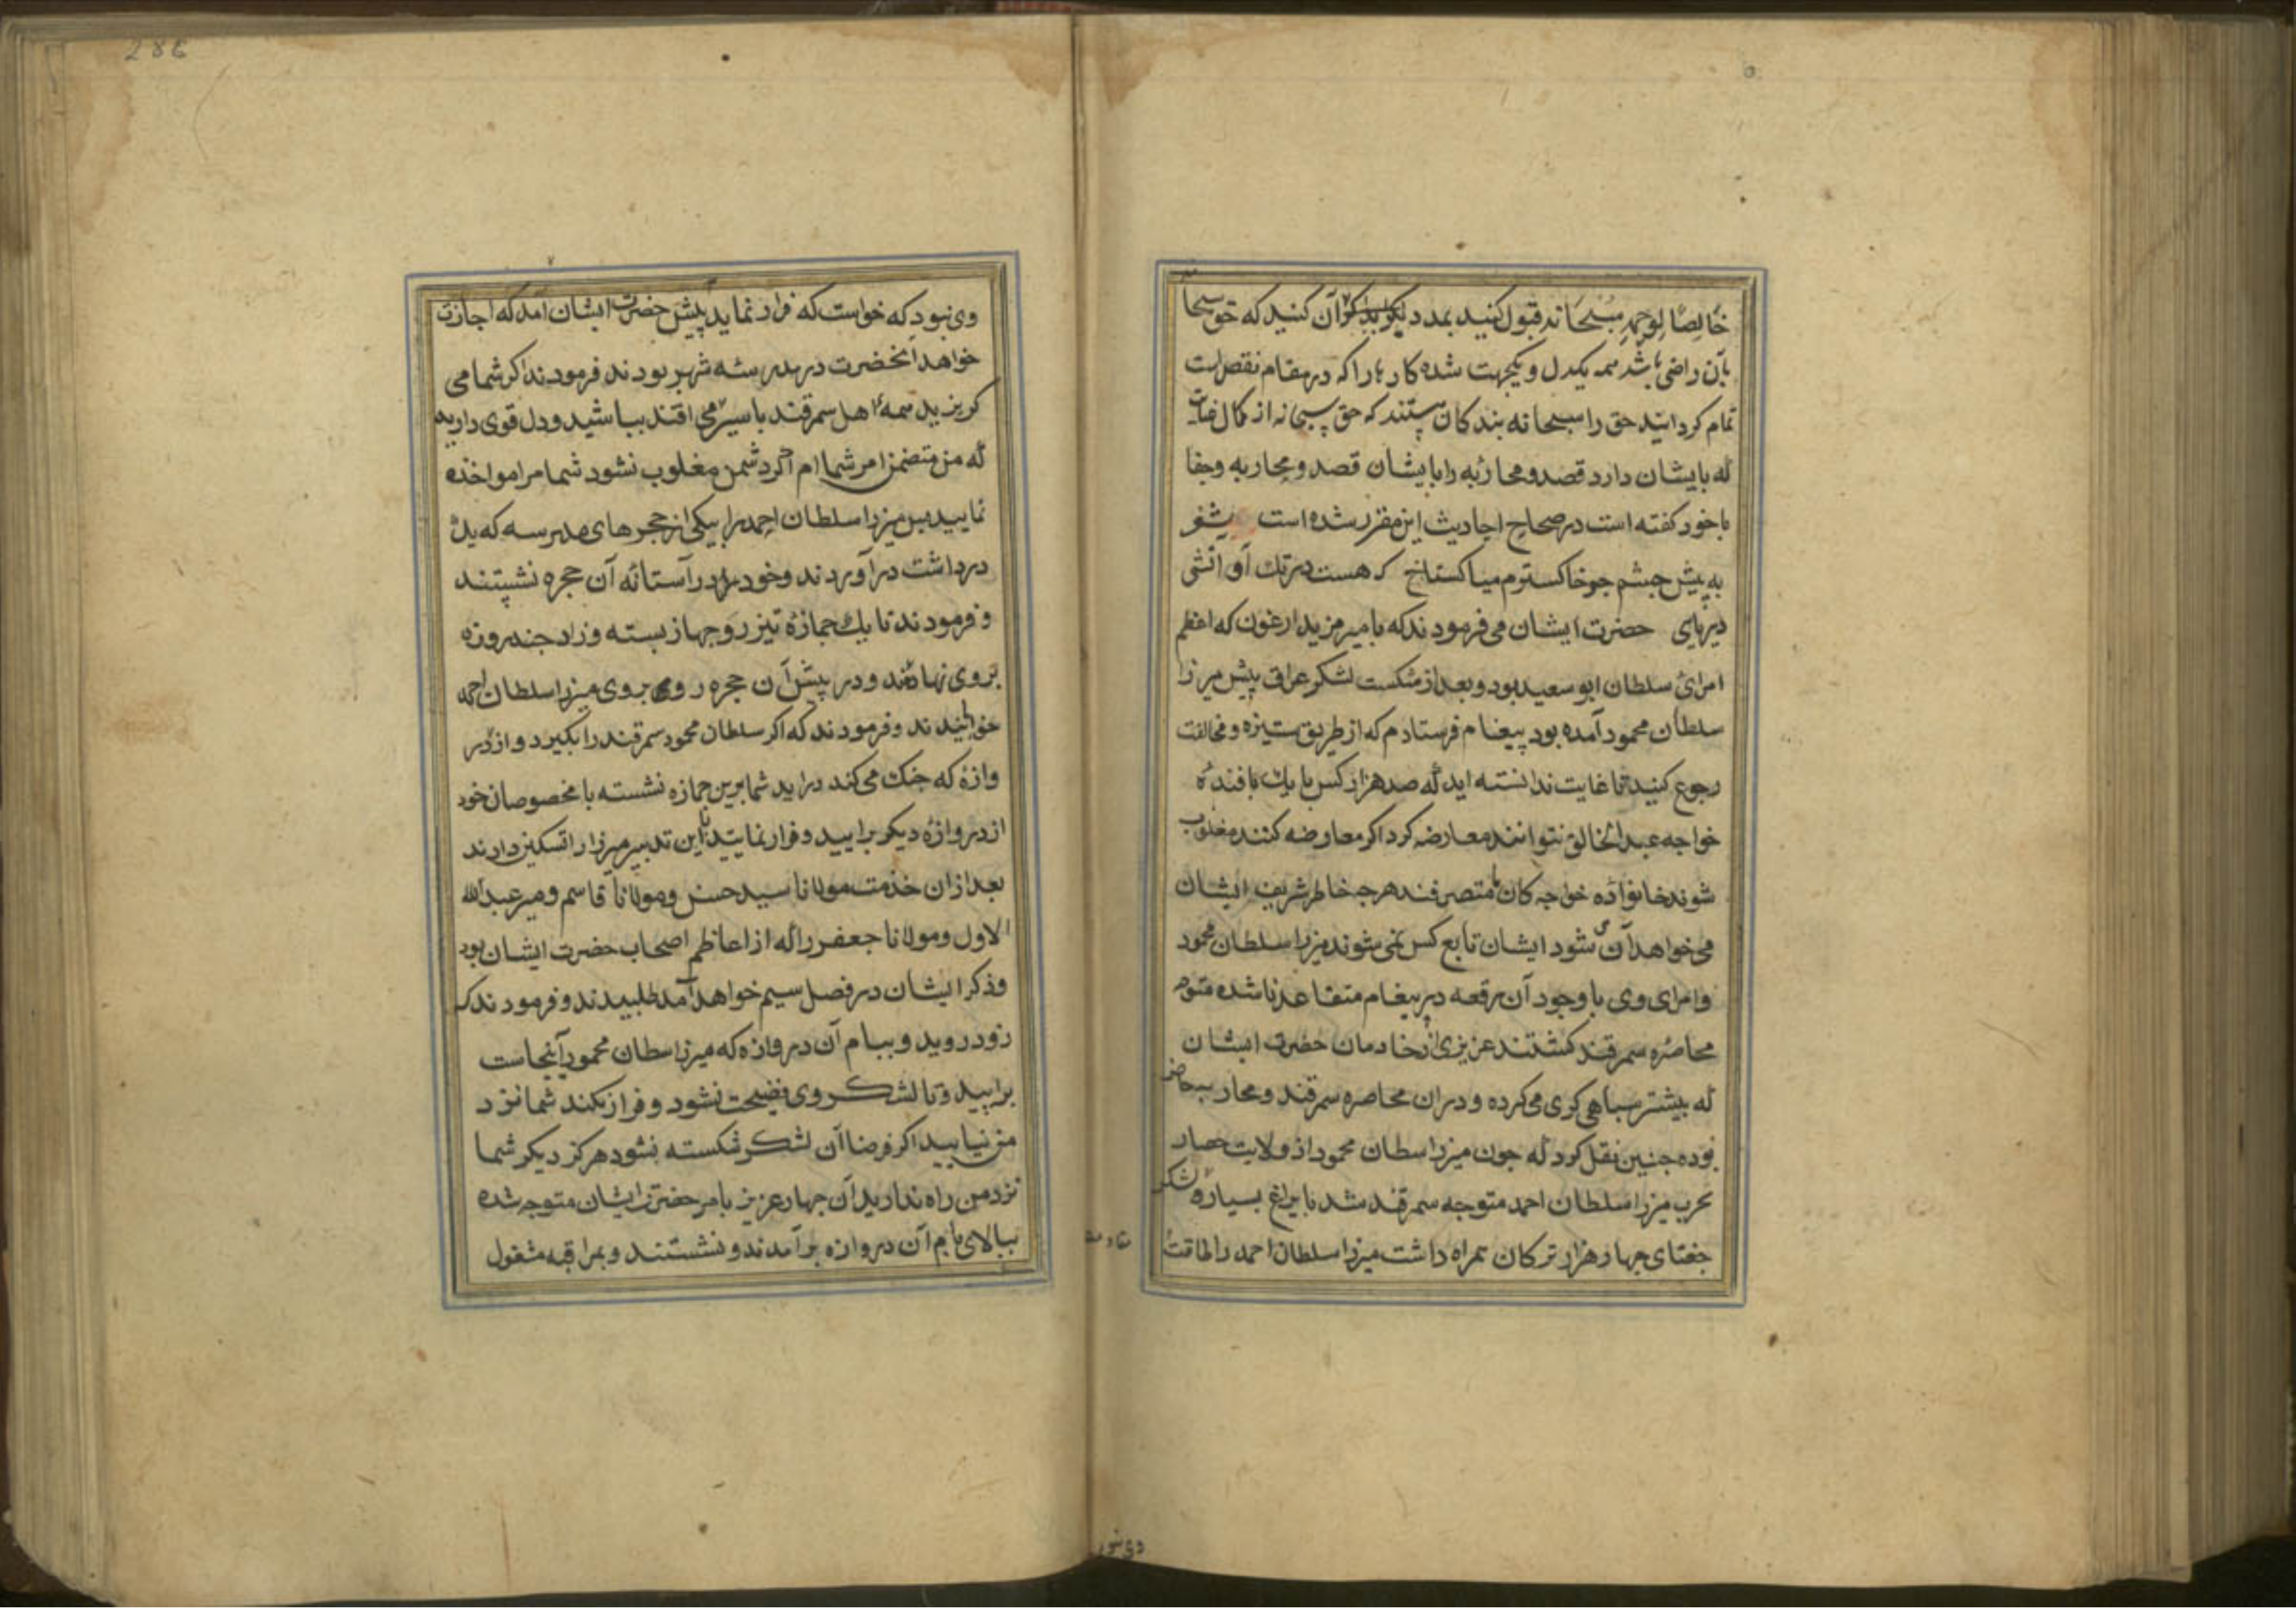 خالصًا لوجهه سبحانه قبول کنید بمدد دیکر آن کنید که حق سبحا
بآن راضی باشد همه یکدل و یکجهت شده کارها را که در مقام نقص است
تمام کردانید حق را سبحانه بندکان هستند که حق سبحانه از کمال عنایت
که بایشان دارد قصد و محاربه را بایشان قصد و محاربه و جفا
با خود کفته است در صحاح احادیث این مقرر شده است شعر
به پیش چشم جو خاکسترم میا کستاخ که هست در تک او آتشی
دریای حضرت ایشان می فرمودند که با میر مزید ارغون که اعظم
امرای سلطان ابو سعید بود و بعد از شکست لشکر عراق پیش میرزا
سلطان محمود آمده بود پیغام فرستادم که از طریق ستیزه و مخالفت
رجوع کنید تا غایت ندانسته اید که صد هزار کس با یک بافنده
خواجه عبد الخالق نتوانند معارضه کرد اکر معارضه کنند مغلوب
شوند خانواده خواجه کان متصرفند هرجه خاطر شریف ایشان
می خواهد آن شود ایشان تابع کس نمی شوند میرزا سلطان محمود
و امرای وی با وجود آن رقعه و پیغام متقاعد نا شده متوجه
محاصره سمرقند کشتند عزیزی از خادمان حضرت ایشان
که بیشتر سباهی کری می کرده و در ان محاصره سمرقند و محاربه حاضر
بوده جنین نقل کرد که جون میرزا سطان محمود از ولایت حصار
بحرب میرزا سلطان احمد متوجه سمرقند شد با یراغ بسیار و لشکر
جغتای جهار هزار ترکان همراه داشت میرزا سلطان احمد را طاقت
وی نبود که خواست که فرار نماید پیش حضرت ایشان آمد که اجازت
خواهد آنحضرت در مدرسه شهر بودند فرمودند اکر شما می
کریزید همه اهل سمرقند باسیری می افتند بباشید و دل قوی دارید
که من متضمن امر شما ام اکر دشمن مغلوب نشود شما مرا مواخذه
نمایید بس میرزا سلطان احمد را بیکی از حجرهای مدرسه که یک
در داشت در آوردند و خود در آستانه آن حجره نشستند
و فرمودند تا یک جمازه تیز رو جهاز بسته و زاد جند روزه
بروی نهادند و در پیش آن حجره روی بروی میرزا سلطان احمد
خوابنیدند و فرمودند که اکر سلطان محمود سمرقند را بکیرد و از در
وازه که جنک می کند در اید شما برین جمازه نشسته با مخصوصان خود
از دروازه دیکر برایید و فرار نمایید باین تدبیر میرزا را تسکین دادند
بعد از ان خدمت مولانا سید حسن و مولانا قاسم و میر عبد الله
الاول و مولانا جعفر را که از اعاظم اصحاب حضرت ایشان بود
و ذکر ایشان در فصل سیم خواهد آمد طلبیدند و فرمودند که
زود روید و ببام آن دروازه که میرزا سطان محمود آنجاست
برایید و تا لشکر وی فضیحت نشود و فرار نکند شما نزد
من نیایید اکر فرضا آن لشکر شکسته نشود هرکز دیکر شما
نزد من راه ندارید آن جهار عزیز بامر حضرت ایشان متوجه شده
ببالای بام آن دروازه برآمدند و نشستند و بمراقبه مشغول
وی نبود
286